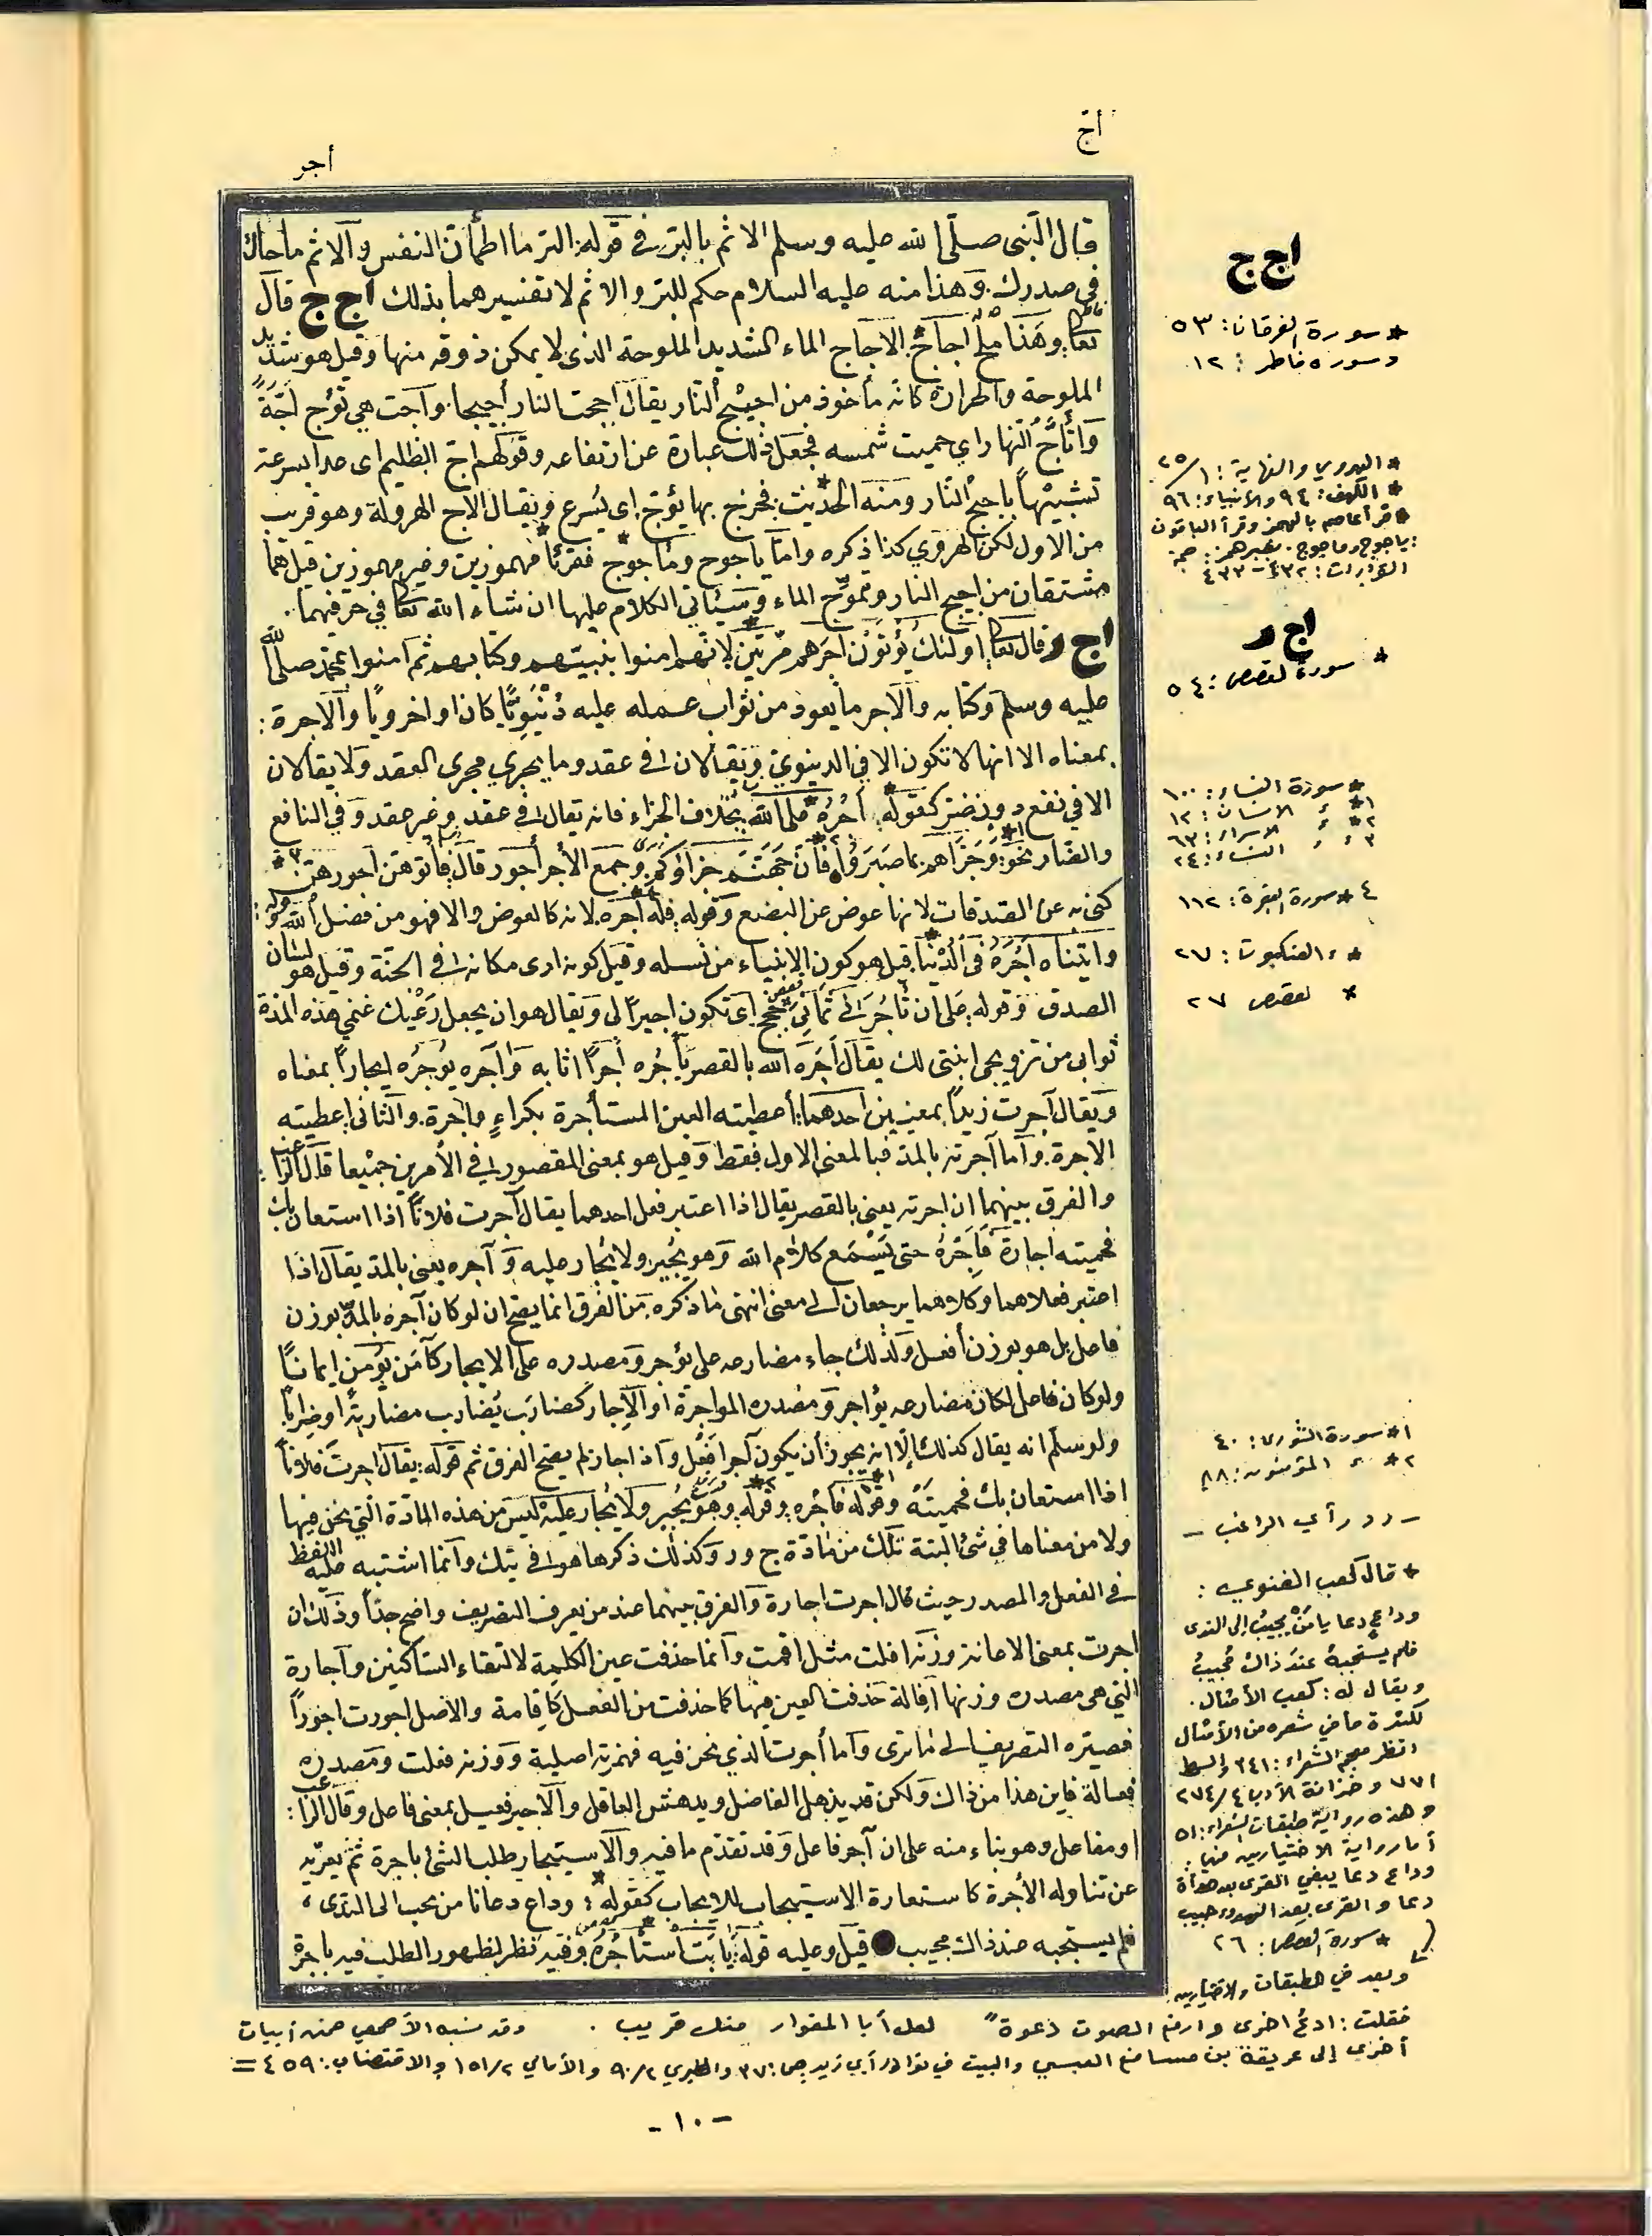 أج
أجر
قال النبى صلى الله عليه وسلم الاثم بالبر فى قوله البر ما اطمأنت النفس والاثم ما حاك
فى صدرك وهذا منه عليه السلام حكم للبر والاثم لا تفسيرهما بذلك ا ج ج قال
تعالى وهذا ملح أجاج الاجاج الماء الشديد الملوحة الذى لا يمكن ذوقه منها وقيل هو شديد
الملوحة والحرارة كانه مأخوذ من اجيج النار يقال اججت النار أجيجا وأجت هى تؤج اجة
وأتج النهار اي حميت شمسه فجعل ذلك عبارة عن ارتفاعه وقولهم اج الظليم اى عدا بسرعة
تشبيها باجيج النار ومنه الحديث فخرج بها يؤج اى يسرع ويقال الاج الهرولة وهو قريب
من الاول لكن الهروي كذا ذكره واما ياجوج وماجوج فقرئا مهموزين وغير مهموزين قيل هما
مشتقان من اجيج النار وتموج الماء وسيأتى الكلام عليها ان شاء الله تعالى في حرفهما
ا ج ر قال تعالى اولئك يؤتون اجرهم مرتين لانهم امنوا بنبيهم وكتابهم ثم امنوا بمحمد صلى الله
عليه وسلم وكتابه والاجر ما يعود من ثواب عمله عليه دنيويا كان او اخرويا والاجرة :
بمعناه الا انها لا تكون الا في الدنيوي ويقالان فى عقد وما يجري مجرى العقد ولا يقالان
الا في نفع دون ضر كقوله اجره على الله بخلاف الجزاء فانه يقال فى عقد وغير عقد وفي النافع
والضار نحو وجزاهم بما صبروا فان جهنم جزاؤكم وجمع الأجر أجور قال فاتوهن اجورهن
كنى به عن الصدقات لانها عوض عن البضع وقوله فله أجره لانه كالعوض والا فهو من فضل الله وقوله :
واتيناه اجره فى الدنيا قيل هو كون الانبياء من نسله وقيل كونه ارى مكانه فى الجنة وقيل هو لسان
الصدق وقوله على ان تأجرنى ثمانى حجج اى تكون اجيرا لى ويقال هو ان يجعل رعيك غنمي هذه المدة
ثوابى من تزويجى ابنتى لك يقال أجره الله بالقصر يأجره أجرا اثابه وآجره يؤجره ايجارا بمعناه
ويقال آجرت زيدا بمعنيين احدهما أعطيته العين المستأجرة بكراء واجرة والثانى اعطيته
الاجرة وأما آجرته بالمد فبالمعنى الاول فقط وقيل هو بمعنى المقصور فى الأمرين جميعا قال الراغب :
والفرق بينهما ان اجرته يعنى بالقصر يقال اذا اعتبر فعل احدهما يقال أجرت فلانا اذا استعان بك
فحميته اجارة فأجره حتى يسمع كلام الله وهو يجير ولا يجار عليه وآجره يعنى بالمد يقال اذا
اعتبر فعلاهما وكلاهما يرجعان الى معنى انتهى ما ذكره من الفرق انما يصح ان لو كان آجره بالمد بوزن
فاعل بل هو بوزن أفعل ولذلك جاء مضارعه على يؤجر ومصدره على الايجار كآمن يؤمن ايمانا
ولو كان فاعل لكان مضارعه يؤاجر ومصدره المواجرة او الإجار كضارب يضارب مضاربة او ضرابا
ولو سلم انه يقال كذلك إلا انه يجوز أن يكون آجر افعل واذا جاز لم يصح الفرق ثم قوله يقال اجرت فلانا
اذا استعان بك فحميته وقوله فأجره وقوله وهو يجير ولا يجار عليه ليس من هذه المادة التي نحن فيها
ولا من معناها فى شئ البتة تلك من مادة ج و ر وكذلك ذكرها هو فى تيك وانما اشتبه عليه اللفظ
فى الفعل والمصدر حيث قال اجرت اجارة والفرق بينهما عند من يعرف التصريف واضح جدا وذلك ان
اجرت بمعنى الاعانة وزنه افلت مثل اقمت وانما حذفت عين الكلمة لالتقاء الساكنين وآجارة
التي هى مصدره وزنها افالة حذفت العين منها كما حذفت من الفعل كاقامة والاصل اجورت اجورا
فصيره التصريف الى ما ترى واما أجرت الذي نحن فيه فهمزته اصلية ووزنه فعلت ومصدره
فعالة فاين هذا من ذاك ولكن قد يذهل الفاضل ويدهش العاقل والاجير فعيل بمعنى فاعل وقال الراغب :
او مفاعل وهو بناء منه على ان آجر فاعل وقد تقدم ما فيه والاستيجار طلب الشئ باجرة ثم يعبر به
عن تناوله الأجرة كاستعارة الاستيجاب للايجاب كقوله : وداع دعانا من يجيب الى الندى ،
فلم يستجبه عند ذاك مجيب قيل وعليه قوله يا أبت استأجره وفيه نظر لظهور الطلب فيه باجرة
اج ج
* سورة الفرقان : ٥٣
وسوره فاطر : ١٢
* الهروي والنهاية : ١/٢٥
* الكهف : ٩٤ والأنبياء : ٩٦
* قرأ عاصم بالهمز وقرأ الباقون
: ياجوج وماجوج . بغير همز : حجة
القراءات : ٤٣٢ - ٤٣٣
اج ر
* سورة القصص : ٥٤
* سورة النساء : ١٠٠
١* ء الانسان : ١٢
٢* ء الاسراء : ٦٣
٣ ء ء النساء : ٢٤
٤* سورة البقرة : ١١٢
* ء العنكبوت : ٢٧
* لقصص ٢٧
١* سورة الشورى : ٤٠
٢* ء المؤمنون : ٨٨
- رد رأي الراغب -
* قال كعب الغنوي :
وداع دعا يا من يجيب إلى الندى
فلم يستجبه عند ذاك مجيب
ويقال له : كعب الأمثال .
لكثرة ما في شعره من الأمثال
انظر معجم الشعراء : ٣٤١ والسمط
٧٧١ وخزانة الأدب ٤/٣٧٤
وهذه رواية طبقات الشعراء : ٥١
أما رواية الاختيارين فهي :
وداع دعا يبغي القرى بعد هدأة
دعا والقرى بعد الهدوء حبيب
* سورة القصص : ٢٦
وبعد في الطبقات والاختيارين
فقلت : ادع اخرى وارفع الصوت دعوة " لعل أبا المغوار منك قريب . وقد نسبه الأصمعي ضمن أبيات
أخرى إلى عريقة بن مسافع العبسي والبيت في نوادر أبي زيد ص : ٣٧ والطبري ٢/٩٠ والأمالي ٢/١٥١ والاقتضاب : ٤٥٩ =
- ١٠ -